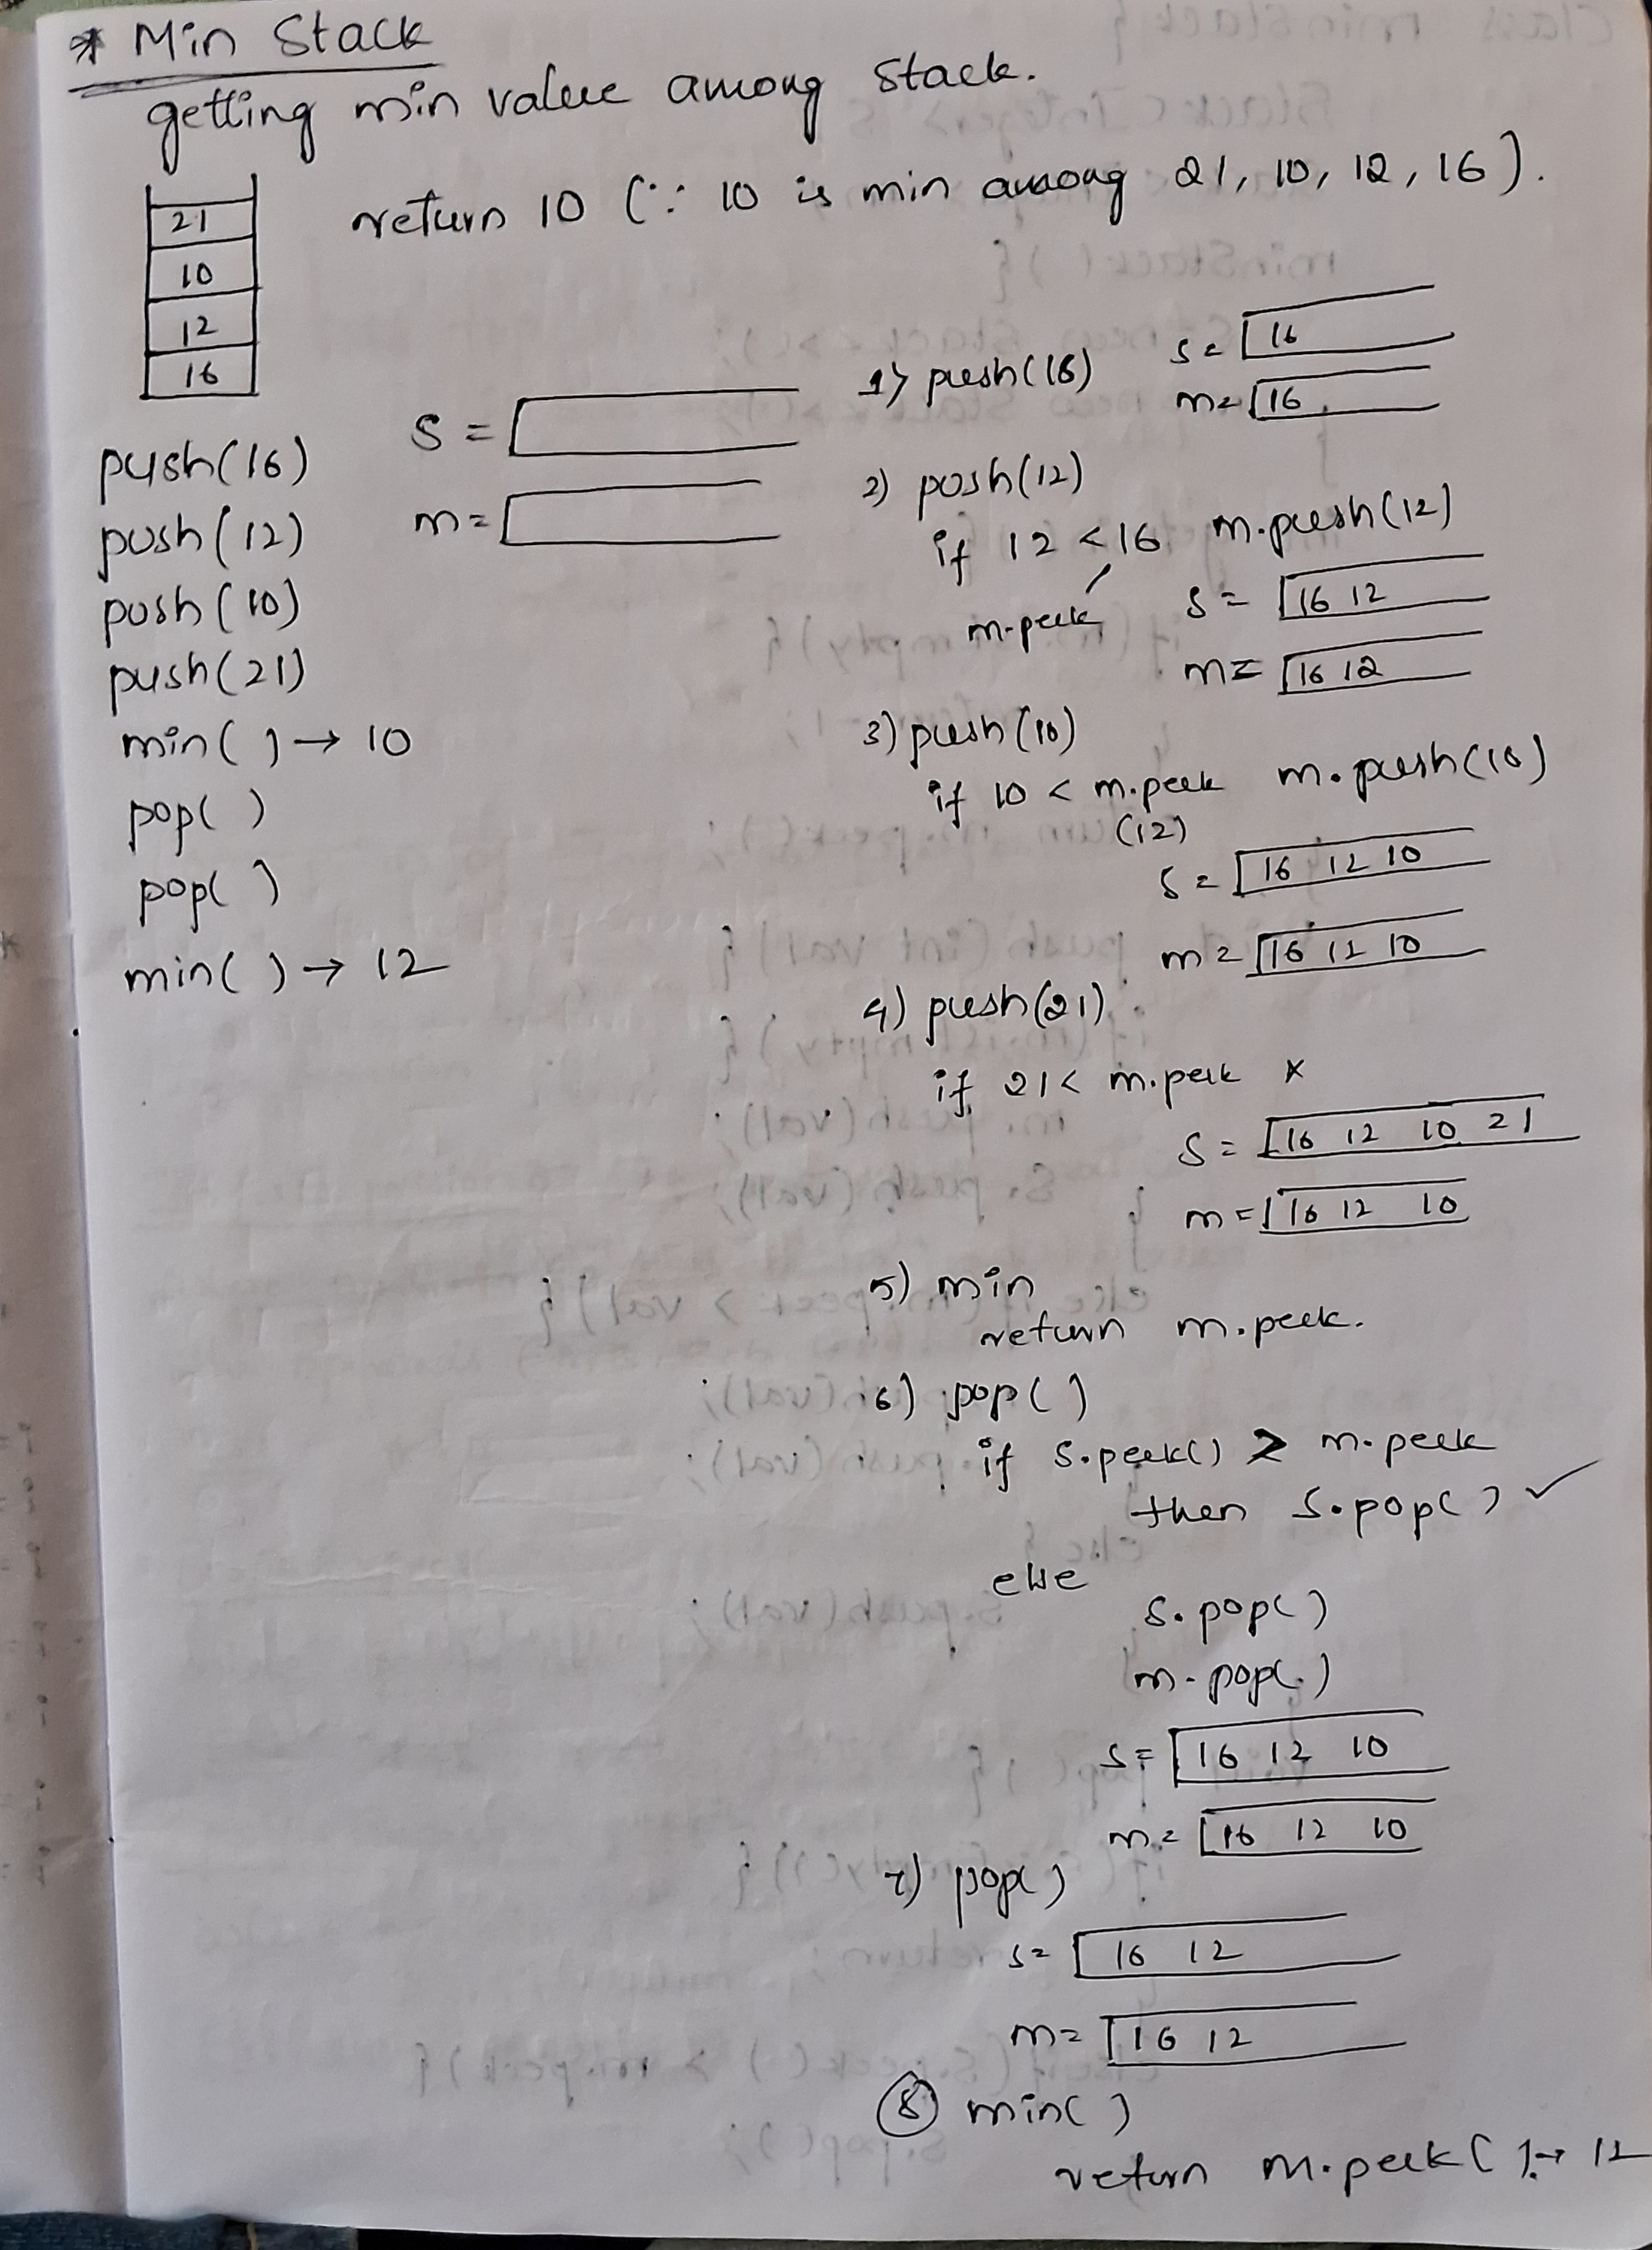 * Min Stack
getting min value among stack.
return 10 (∵ 10 is min among 21, 10, 12, 16).
21
10
12
16
push(16)
push(12)
push(10)
push(21)
min( ) → 10
pop( )
pop( )
min( ) → 12
s =
m =
1) push(16)
s = 16
m = 16
2) push(12)
if 12 < 16 m.push(12)
m.peek
s = 16 12
m = 16 12
3) push(10)
if 10 < m.peek m.push(10)
(12)
s = 16 12 10
m = 16 12 10
4) push(21)
if 21 < m.peek x
s = 16 12 10 21
m = 16 12 10
5) min
return m.peek.
6) pop( )
if s.peek() > m.peek
then s.pop( ) ✓
else
s.pop( )
m.pop( )
s = 16 12 10
m = 16 12 10
7) pop( )
s = 16 12
m = 16 12
8 min( )
return m.peek( ) → 12